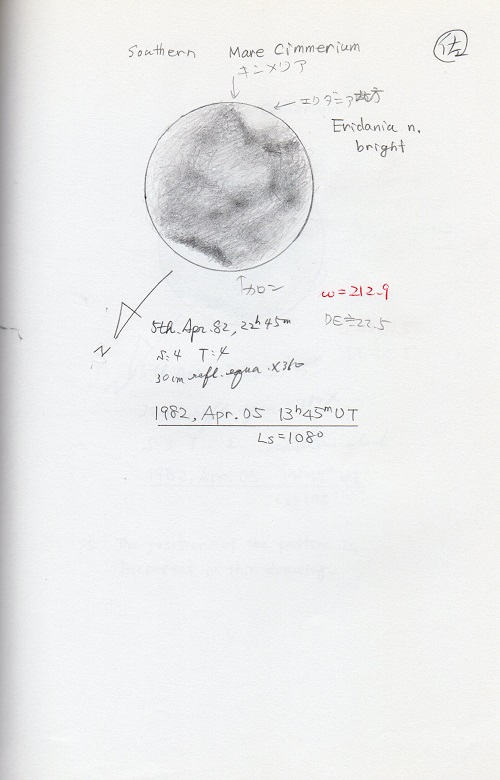 佐
Southern Mare Cimmerium
キンメリア
エリダニア北方
Eridania n.
bright
カロン
ω=212.9
DE≑22.5
5th. Apr. 82, 22h45m
N
S:4 T:4
30cm refl. equa. X360
1982, Apr. 05 13h45m UT
Ls=108°